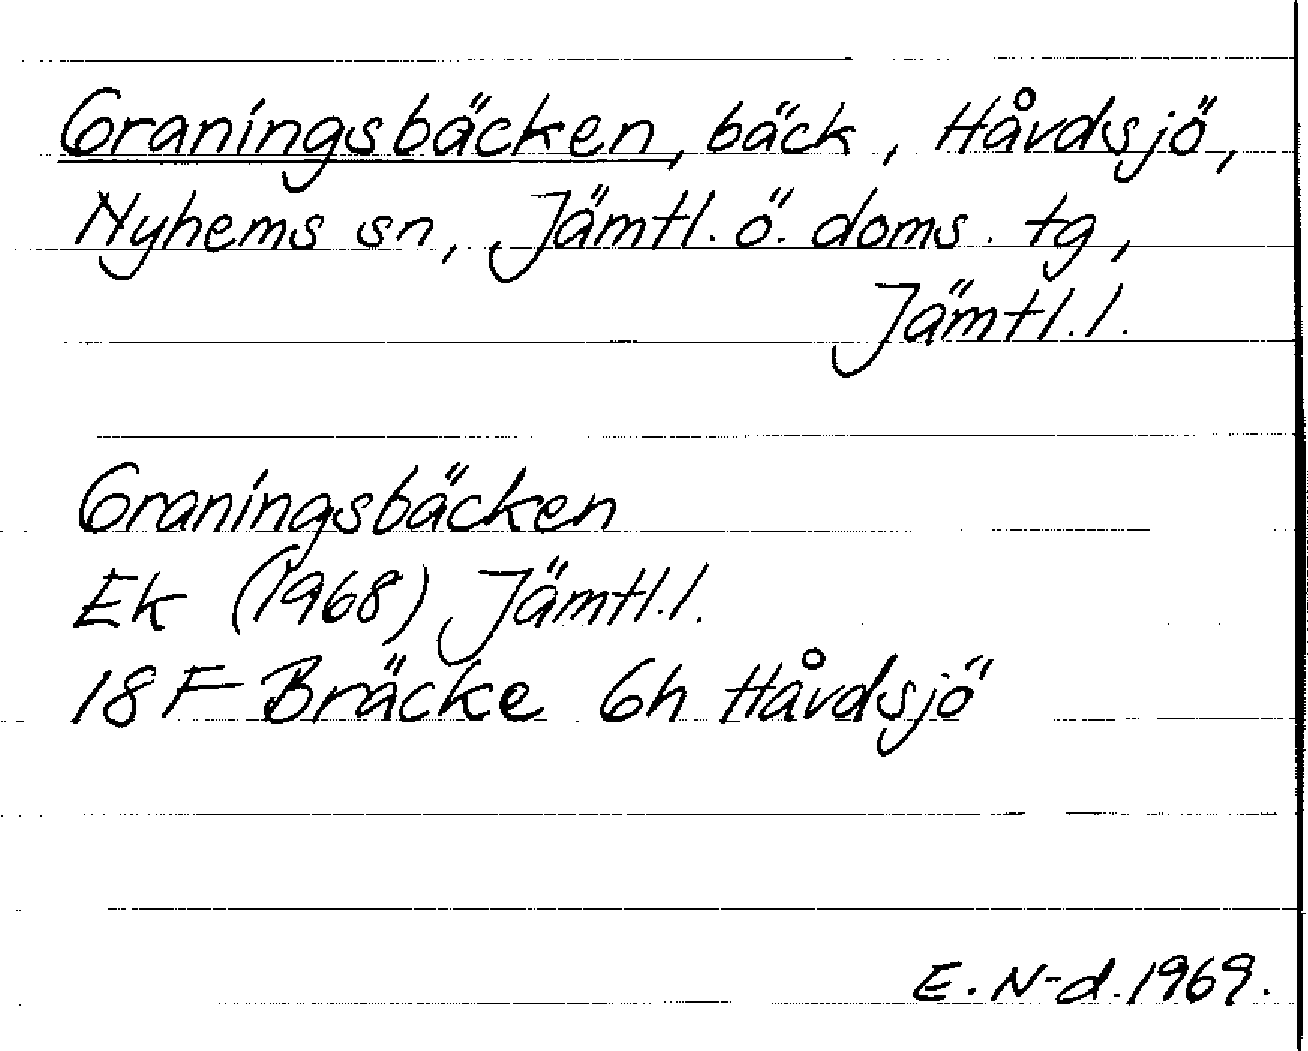 Graningsbäcken, bäck, Håvdsjö,
Nyhems sn, Jämtl. ö. doms. tg,
Jämtl. l.
Graningsbäcken
Ek (1968) Jämtl. l.
18 F Bräcke 6h Håvdsjö
E. N-d. 1969.